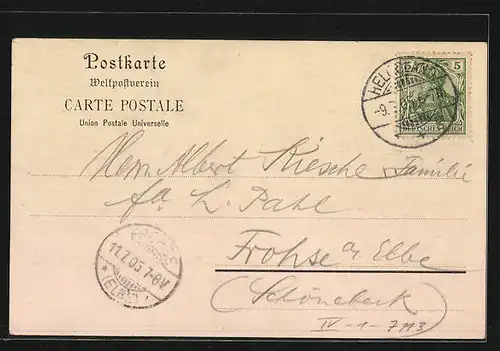 Postkarte
Weltpostverein
CARTE POSTALE
Union Postale Universelle
HELGOLAND
5
DEUTSCHES REICH
Herrn Albert Kiesche u. Familie
fa. L. Pahl
Frohse a/ Elbe
(Schönebeck)
FROHSE
11.7.05 7-8V
* (ELBE)
IV-1-7113